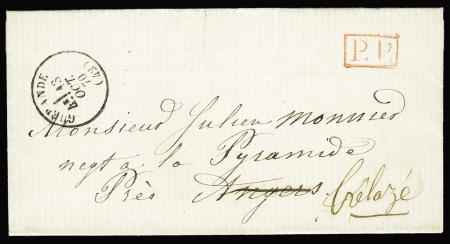 P.P.
GUERANDE
13
OCT
70
(42)
Monsieur Julien Monnier
negt a la Pyramide
Près Angers Trélazé